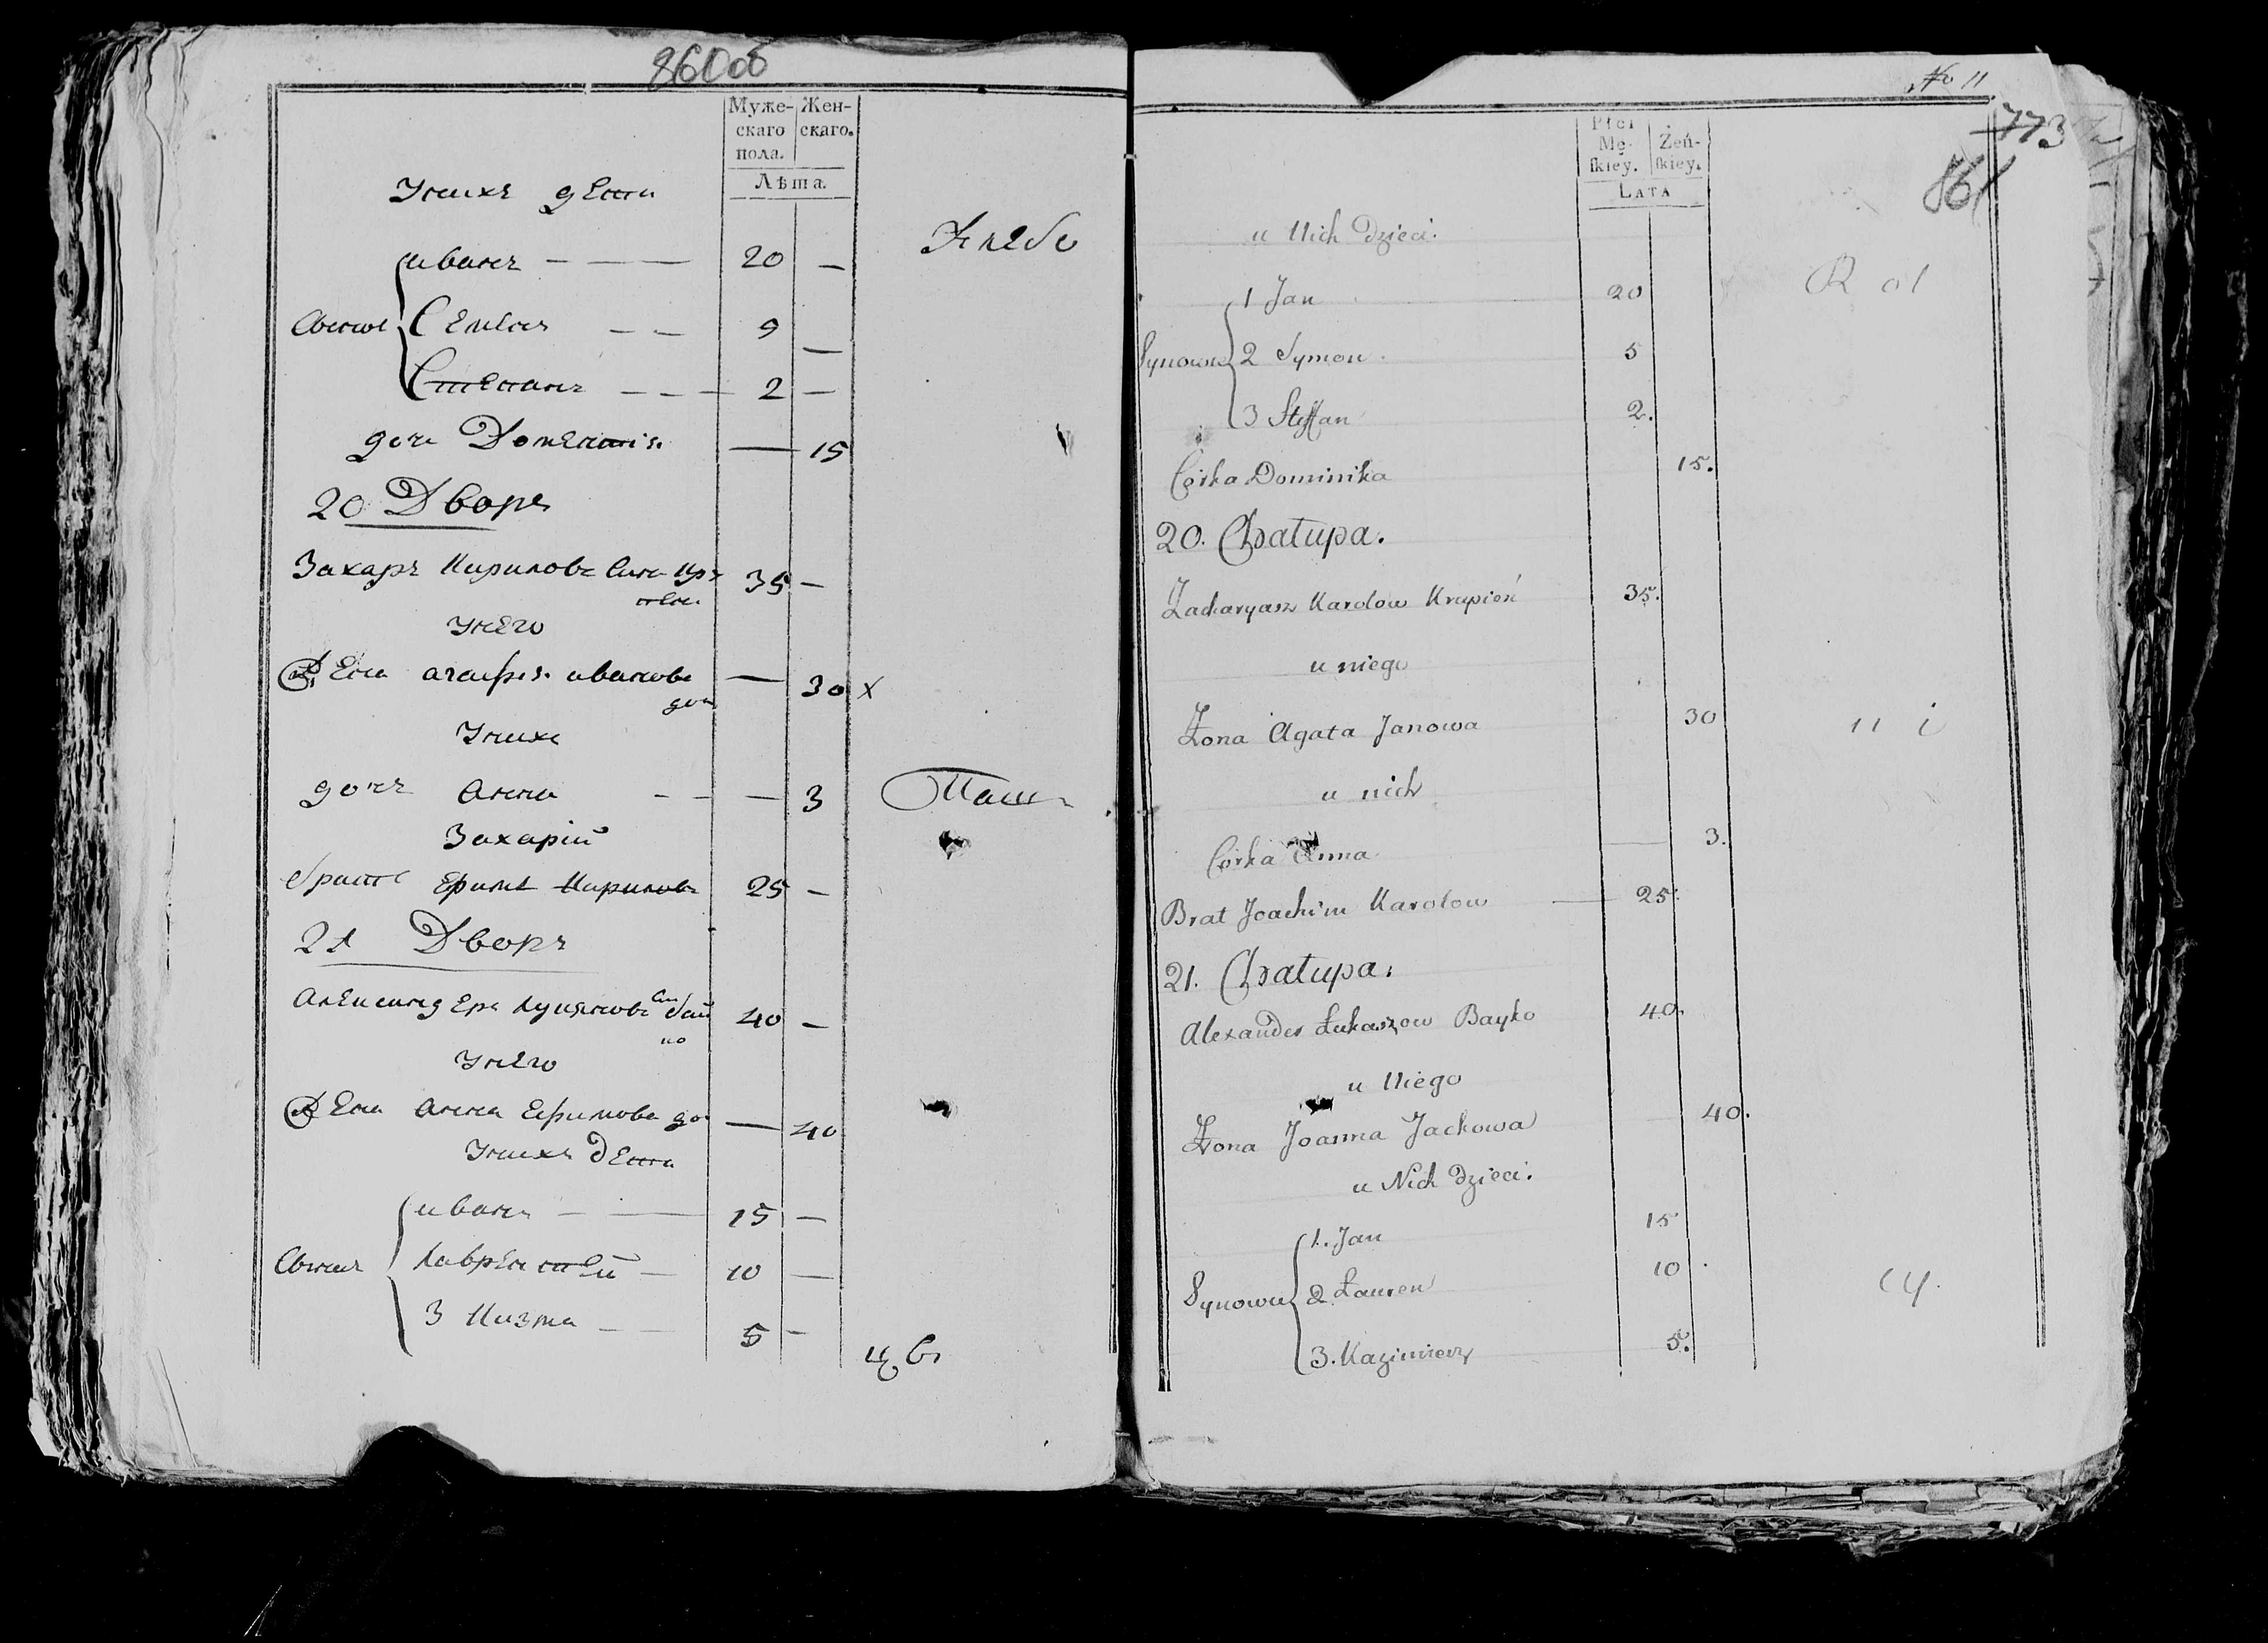 860об
Муже- Жен-
скаго скаго.
пола.
Лѣта.
У нихъ дети
иванъ — — — 20 —
Сыновья Семенъ — — 9 —
Степанъ — — — 2 —
дочь — 15
20 Дворъ
Захаръ Кириловъ Сынъ 35 —
У него
Жена агафья иванова — 30 х
доч
У нихъ
дочь анна — — — 3
Захарій
братъ Ефимъ Кириловъ 25 —
21 Дворъ
Александеръ Лукяновъ Сы бай 40 —
ко
У него
Жена анна Ефимова до — 40
У нихъ дети
иванъ — — 15 —
Лаврентей — 10 —
3 Кузма — — 5 —
№ 11
773
861
Płci
Mę- Żeń-
skiey. skiey.
LATA
u Nich Dzieci.
1 Jan 20
Synowie 2 Symon 5
3 Steffan 2.
Córka Dominika 15.
20. Chatupa.
Zacharyasz Karolow Krupień 35.
u niego
Żona Agata Janowa 30
u nich
Córka Anna — 3.
Brat Joachim Karolow — 25.
21. Chatupa.
Alexander Łukaszow Bayko 40.
u Niego
Żona Joanna Jackowa 40.
u Nich Dzieci.
1. Jan 15
Synowie 2. Lauren 10
3. Kazimierz 5.